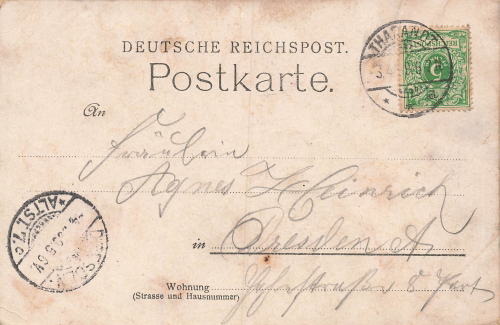 DEUTSCHE REICHSPOST.
Postkarte.
THARANDT
REICHSPOST
5
An
Fräulein
Agnes Heinrich
in Dresden A
Wohnung
(Strasse und Hausnummer)
8 Part
ALTST.